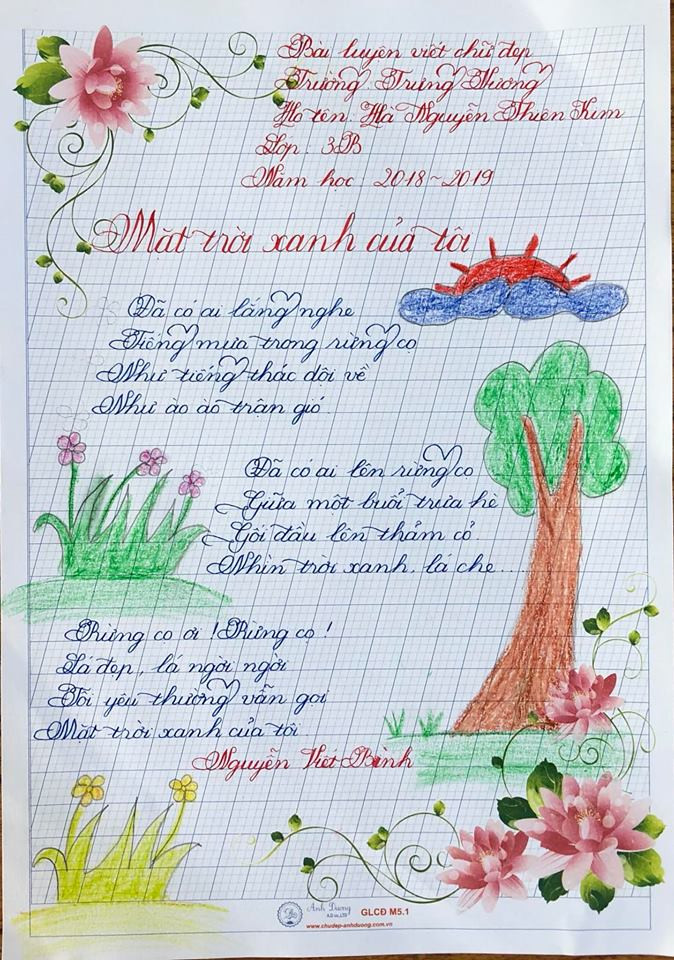 Bài luyện viết chữ đẹp
Trường Trưng Vương
Họ tên: Hà Nguyễn Thiên Kim
Lớp: 3B
Năm học: 2018~2019
Mặt trời xanh của tôi
Đã có ai lắng nghe
Tiếng mưa trong rừng cọ
Như tiếng thác dội về
Như ào ào trận gió.
Đã có ai lên rừng cọ
Giữa một buổi trưa hè
Gối đầu lên thảm cỏ
Nhìn trời xanh, lá che....
Rừng cọ ơi! Rừng cọ!
Lá đẹp, lá ngời ngời
Tôi yêu thường vẫn gọi
Mặt trời xanh của tôi
Nguyễn Viết Bình
Anh Duong
A.D co.,LTD
GLCĐ M5.1
www.chudep-anhduong.com.vn